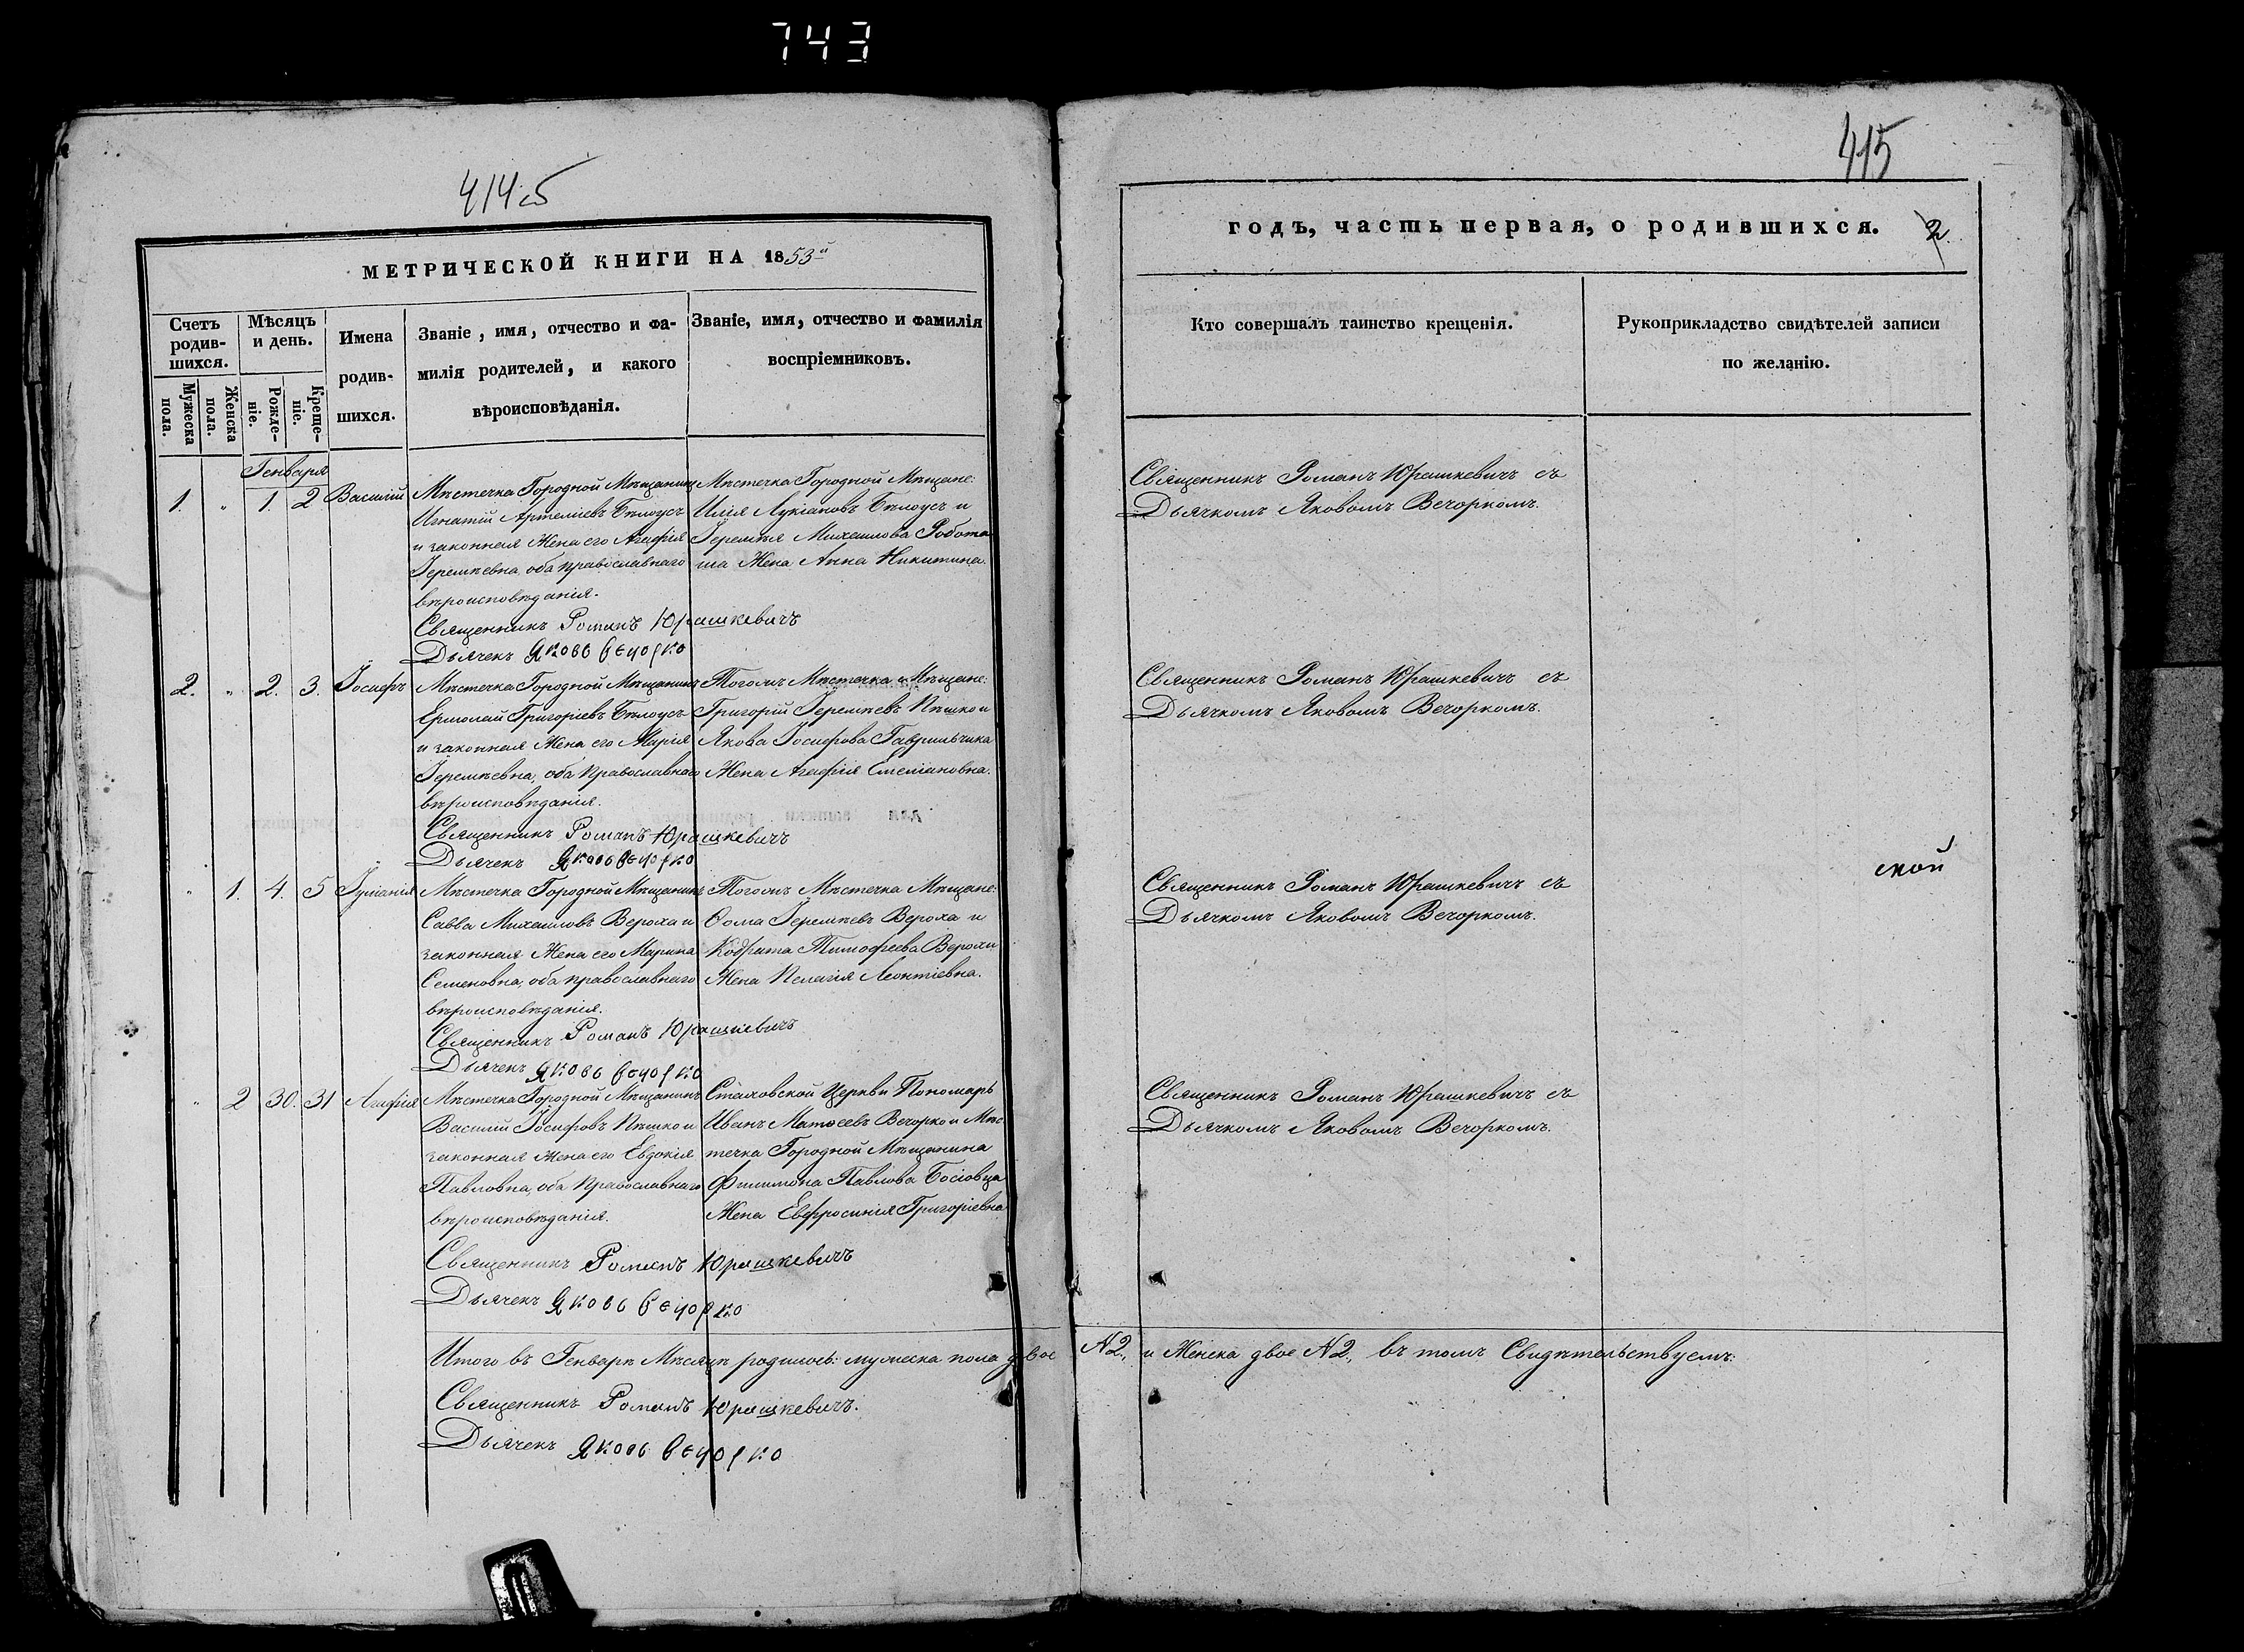 743
414об
415
МЕТРИЧЕСКОЙ КНИГИ НА 1853й
Счетъ родив-шихся.
Мужеска пола.
Женска пола.
Мѣсяцъ и день.
Рожде-ніе.
Креще-ніе.
Имена
родив-
шихся.
Званіе, имя, отчество и фа-
милія родителей, и какого
вѣроисповѣданія.
Званіе, имя, отчество и фамилія
воспріемниковъ.
Генваря
1. " 1. 2 Василій
Мѣстечка Городной Мѣщанинъ
Игнатій Артеміевъ Бѣлоусъ
и законная Жена его Агафія
Іеремѣевна, оба православнаго
вѣроисповѣданія.
Мѣстечка Городной Мѣщане:
Илія Лукіановъ Бѣлоусъ и
Іеремѣя Михаилова Робота-
ша Жена Анна Никитина.
Священникъ Романъ Юрашкевичъ
Дьячекъ Яковъ Вечорко
2. " 2. 3. Іосифъ
Мѣстечка Городной Мѣщанинъ
Ермолай Григоріевъ Бѣлоусъ
и законная Жена его Марія
Іеремѣевна, оба православнаго
вѣроисповѣданія.
Тогожъ Мѣстечка Мѣщане:
Григорій Іеремѣевъ Пѣшко и
Якова Іосифова Гаврильчика
Жена Агафія Емеліановна.
Священникъ Романъ Юрашкевичъ
Дьячекъ Яковъ Вечорко
" 1. 4. 5 Іуліанія
Мѣстечка Городной Мѣщанинъ
Савва Михаиловъ Вероха и
законная Жена его Марина
Семеновна, оба православнаго
вѣроисповѣданія.
Тогожъ Мѣстечка Мѣщане:
Ѳома Іеремѣевъ Вероха и
Кодрата Тимофеева Верохи
Жена Пелагія Леонтіевна.
Священникъ Романъ Юрашкевичъ
Дьячекъ Яковъ Вечорко
" 2 30. 31 Агафія
Мѣстечка Городной Мѣщанинъ
Василій Іосифовъ Пѣшко и
законная Жена его Евдокія
Павловна, оба Православнаго
вѣроисповѣданія.
Церкви Пономарь
Иванъ Матѳеевъ Вечорко и Мѣс-
течка Городной Мѣщанина
Филимона Павлова
Жена Евфросинія Григоріевна
Священникъ Романъ Юрашкевичъ
Дьячекъ Яковъ Вечорко
Итого въ Генварѣ Мѣсяцѣ родилось: мужеска пола двое N2., и Женска двое N2., въ томъ Свидѣтельствуемъ:
Священникъ Романъ Юрашкевичъ.
Дьячекъ Яковъ Вечорко
годъ, часть первая, о родившихся. 2.
Кто совершалъ таинство крещенія.
Рукоприкладство свидѣтелей записи
по желанію.
Священникъ Романъ Юрашкевичъ съ
Дьячкомъ Яковомъ Вечоркомъ.
Священникъ Романъ Юрашкевичъ съ
Дьячкомъ Яковомъ Вечоркомъ.
ской
Священникъ Романъ Юрашкевичъ съ
Дьячкомъ Яковомъ Вечоркомъ.
Священникъ Романъ Юрашкевичъ съ
Дьячкомъ Яковомъ Вечоркомъ.